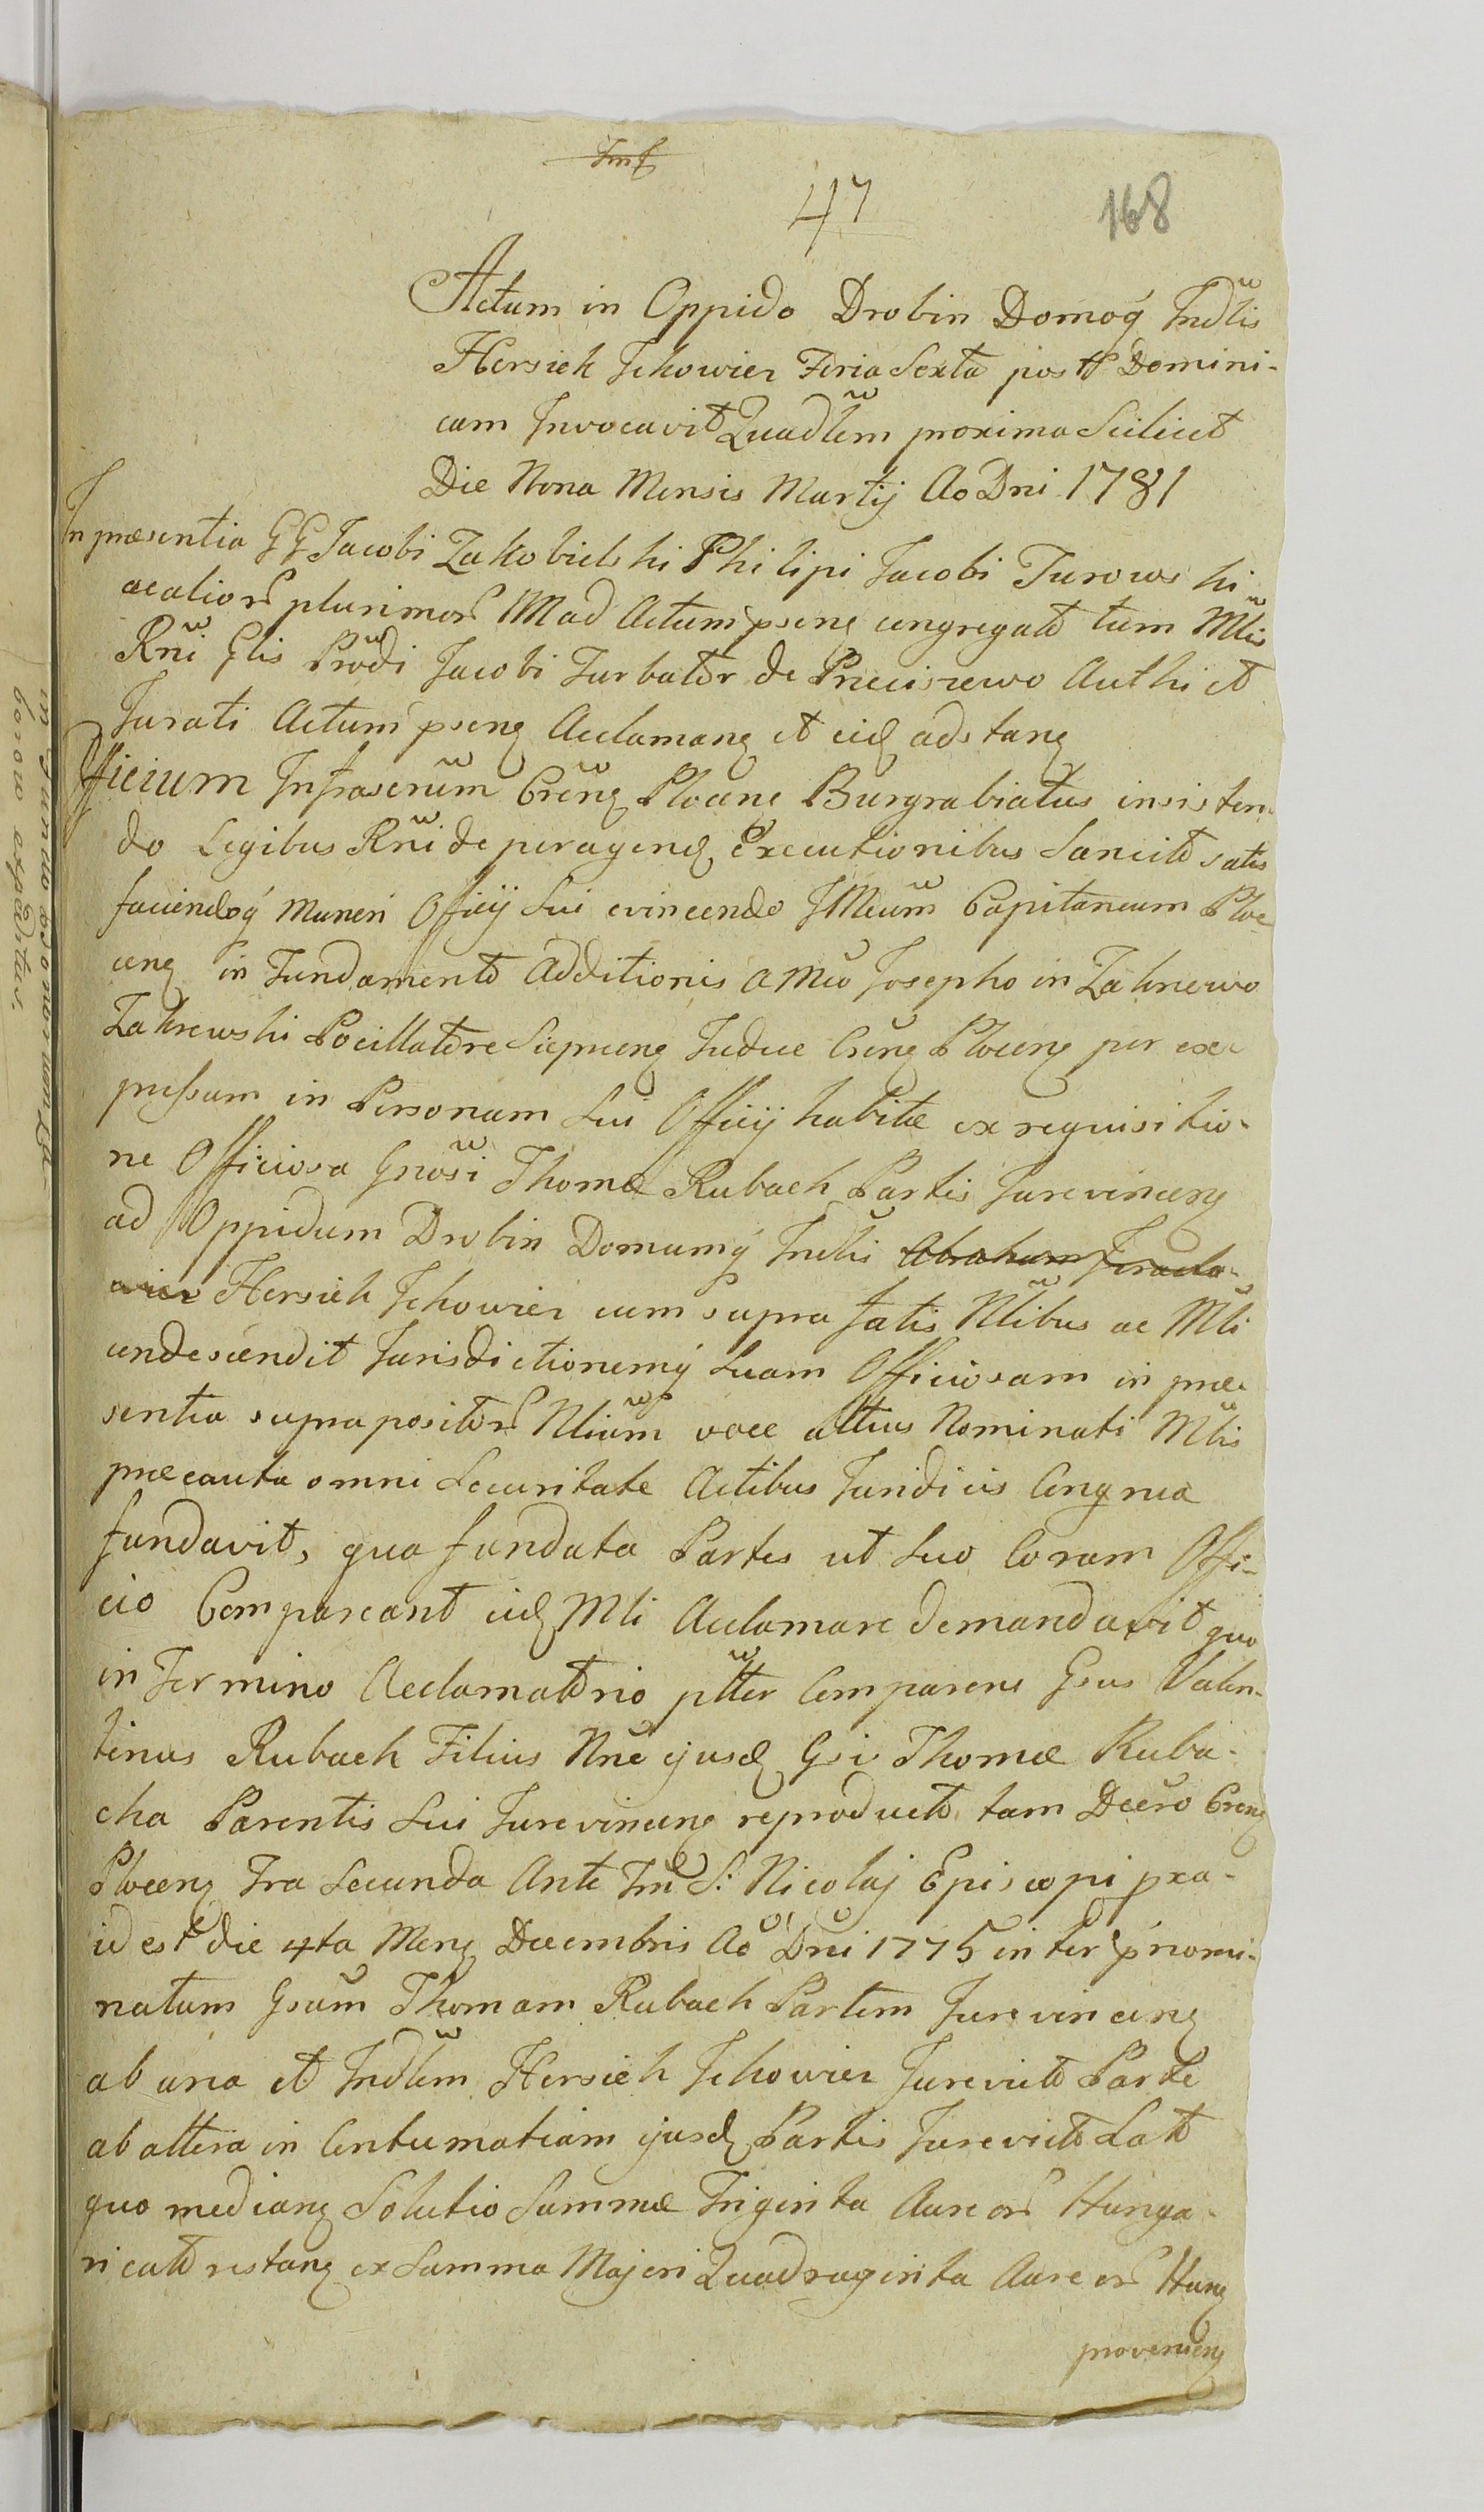 47
168
Actum in Oppido Drobin Domoq Indlis
Hersieh Jchowiez Feria Sexta post Domini-
cam Invocavit Quadlem proxima Scilicet
Die Nona Mensis Martij Ao Dni 1781
In præsentia GG Jacobi Zakobielski Philipi Jacobi Turowski
ac alior plurimor NN ad Actum psens congregato tum Mlis
Rni Glis Prodi Jacobi Turbator de Preciszewo Authi et
Jurati Actum psens Acclamans et eid adstans
Officium Infrascrum Crens Plocens Burgrabiatus insisten-
do Legibus Rni de peragend Executionibus Sancito satis
faciendoq Muneri Officij Sui evincendo JMcum Capitaneum Plo-
cens in Fundamento Additionis a Mco Josepho in Zakrzewo
Zakrewski Pocillatore Sierpcens Judice Crens Plocens per ex-
pressum in Personam Sui Officij habitæ ex requisitio-
ne Officiosa Gnosi Thomæ Rubach Partis Jurevincens
ad Oppidum Drobin Domumq Indlis Abraham
Hersieh Jchowiez cum supra fatis Nlibus ac Mli
condescendit Jurisdictionemq Suam Officiosam in præ-
sentia supra positor Nlium voce altius Nominati Mlis
præcauta omni Securitate Actibus Juridicis Congrua
fundavit, qua fundata Partes ut Suo Coram Offi-
cio Compareant eid Mli Acclamare demandavit quo
in Termino Acclamatorio pltter Comparens Gsus Valen-
tinus Rubach Filius Nne ejusd Gsi Thomæ Ruba-
cha Parentis Sui Jurevincens reproducto tam Decro Crens
Plocens Fra Secunda Ante Fm S. Nicolaj Episcopi pxa-
id est die 4ta Mens Decembris Ao Dni 1775 inter pnomi-
natum Gsum Thomam Rubach Partem Jurevincens
ab una et Indlem Hersieh Jchowiez Jurevicto Parte
ab altera in Contumatiam ejusd Partis Jurevicto Lato
quo medians Solutio Summæ Triginta Aureor Hunga-
ricato restans ex Summa Majori Quadraginta Aureor Hung
proveniens